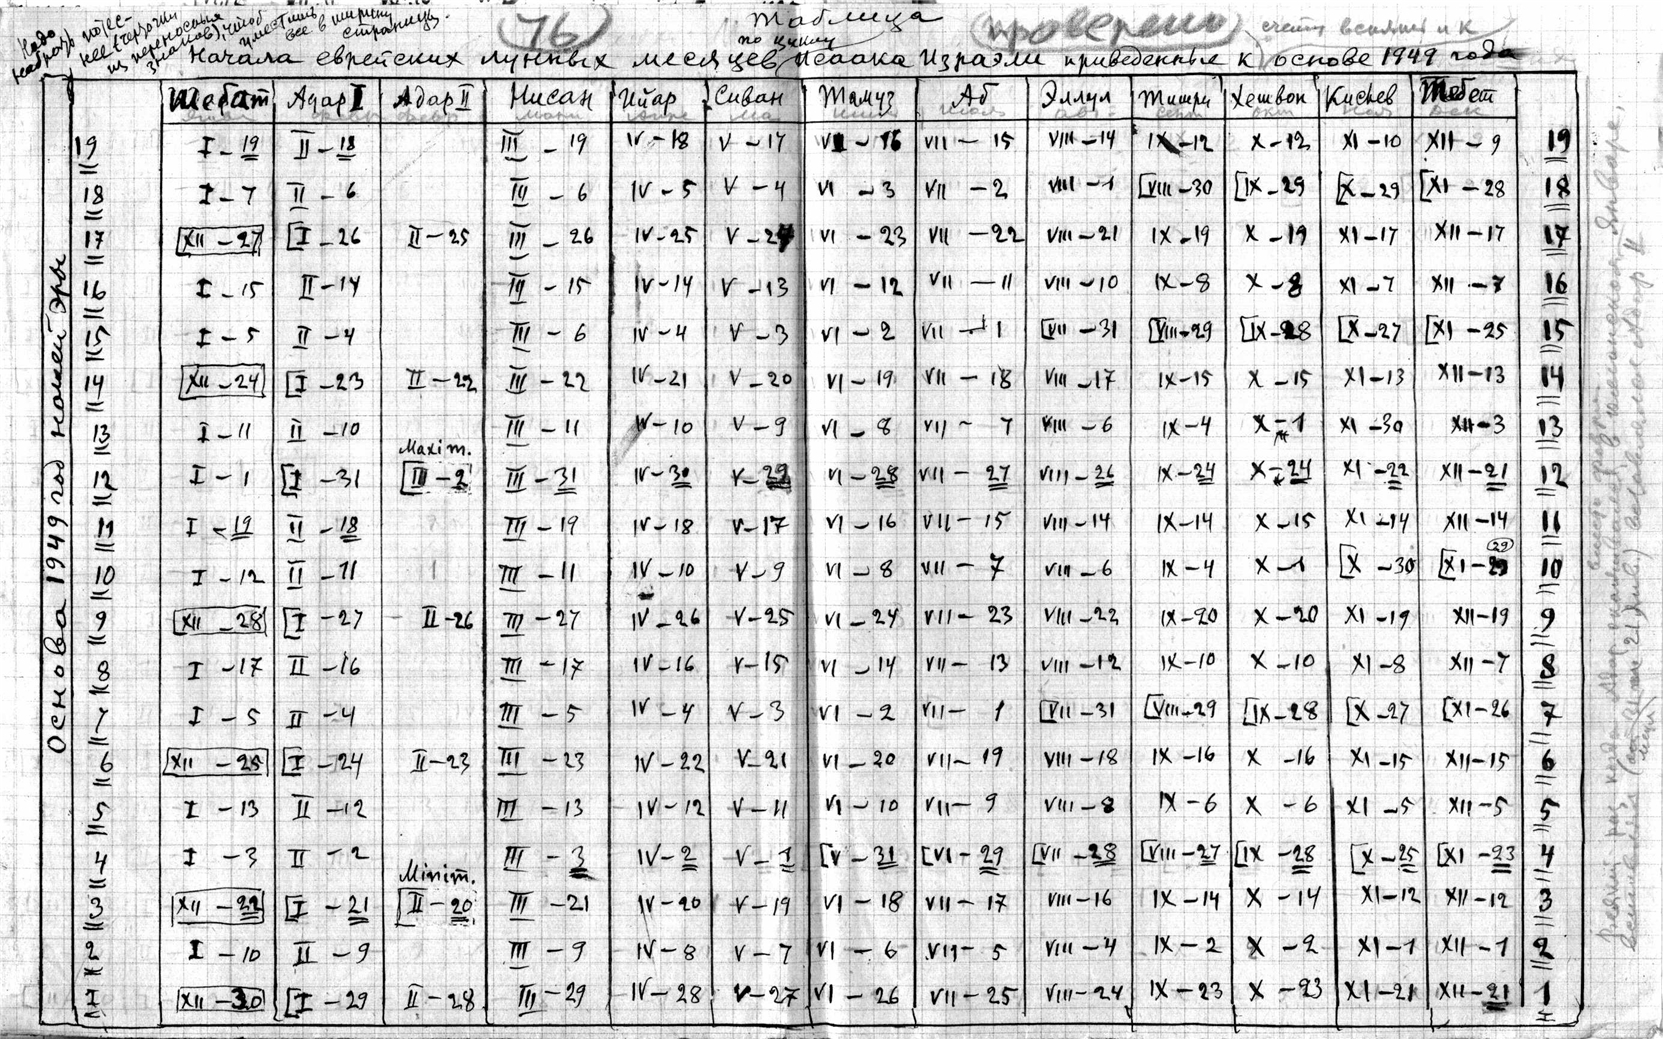 Надо
76
Таблица
проверено
по циклу
Начала еврейских лунных месяцев Исаака Израэли приведенные к основе 1949 года
Шебат Адар I Адар II Нисан Ийар Сиван Тамуз Аб Эллул Тишри Хешвон Кислев Тебет
19 I – 19 II – 18 III – 19 IV – 18 V – 17 VI – 16 VII – 15 VIII – 14 IX – 12 X – 12 XI – 10 XII – 9 19
18 I – 7 II – 6 III – 6 IV – 5 V – 4 VI – 3 VII – 2 VIII – 1 [VIII – 30 [IX – 29 [X – 29 [XI – 28 18
17 [XII – 27] [I – 26 II – 25 III – 26 IV – 25 V – 24 VI – 23 VII – 22 VIII – 21 IX – 19 X – 19 XI – 17 XII – 17 17
16 I – 15 II – 14 III – 15 IV – 14 V – 13 VI – 12 VII – 11 VIII – 10 IX – 8 X – 8 XI – 7 XII – 7 16
15 I – 5 II – 4 III – 6 IV – 4 V – 3 VI – 2 VII – 1 [VII – 31 [VIII – 29 [IX – 28 [X – 27 [XI – 25 15
14 [XII – 24] [I – 23 II – 22 III – 22 IV – 21 V – 20 VI – 19 VII – 18 VIII – 17 IX – 15 X – 15 XI – 13 XII – 13 14
13 I – 11 II – 10 III – 11 IV – 10 V – 9 VI – 8 VII – 7 VIII – 6 IX – 4 X – 1 XI – 30 XII – 3 13
Maxim.
12 I – 1 [I – 31 [III – 2] III – 31 IV – 30 V – 29 VI – 28 VII – 27 VIII – 26 IX – 24 X – 24 XI – 22 XII – 21 12
11 I – 19 II – 18 III – 19 IV – 18 V – 17 VI – 16 VII – 15 VIII – 14 IX – 14 X – 15 XI – 14 XII – 14 11
29
10 I – 12 II – 11 III – 11 IV – 10 V – 9 VI – 8 VII – 7 VIII – 6 IX – 4 X – 1 [X – 30 [XI – 29 10
9 [XII – 28] [I – 27 II – 26 III – 27 IV – 26 V – 25 VI – 24 VII – 23 VIII – 22 IX – 20 X – 20 XI – 19 XII – 19 9
8 I – 17 II – 16 III – 17 IV – 16 V – 15 VI – 14 VII – 13 VIII – 12 IX – 10 X – 10 XI – 8 XII – 7 8
7 I – 5 II – 4 III – 5 IV – 4 V – 3 VI – 2 VII – 1 [VII – 31 [VIII – 29 [IX – 28 [X – 27 [XI – 26 7
6 [XII – 25] [I – 24 II – 23 III – 23 IV – 22 V – 21 VI – 20 VII – 19 VIII – 18 IX – 16 X – 16 XI – 15 XII – 15 6
5 I – 13 II – 12 III – 13 IV – 12 V – 11 VI – 10 VII – 9 VIII – 8 IX – 6 X – 6 XI – 5 XII – 5 5
4 I – 3 II – 2 III – 3 IV – 2 V – 1 [V – 31 [VI – 29 [VII – 28 [VIII – 27 [IX – 28 [X – 25 [XI – 23 4
Minim.
3 [XII – 22] [I – 21 [II – 20] III – 21 IV – 20 V – 19 VI – 18 VII – 17 VIII – 16 IX – 14 X – 14 XI – 12 XII – 12 3
2 I – 10 II – 9 III – 9 IV – 8 V – 7 VI – 6 VII – 5 VIII – 4 IX – 2 X – 2 XI – 1 XII – 1 2
I [XII – 30] [I – 29 II – 28 III – 29 IV – 28 V – 27 VI – 26 VII – 25 VIII – 24 IX – 23 X – 23 XI – 21 XII – 21 1
Основа 1949 год нашей эры